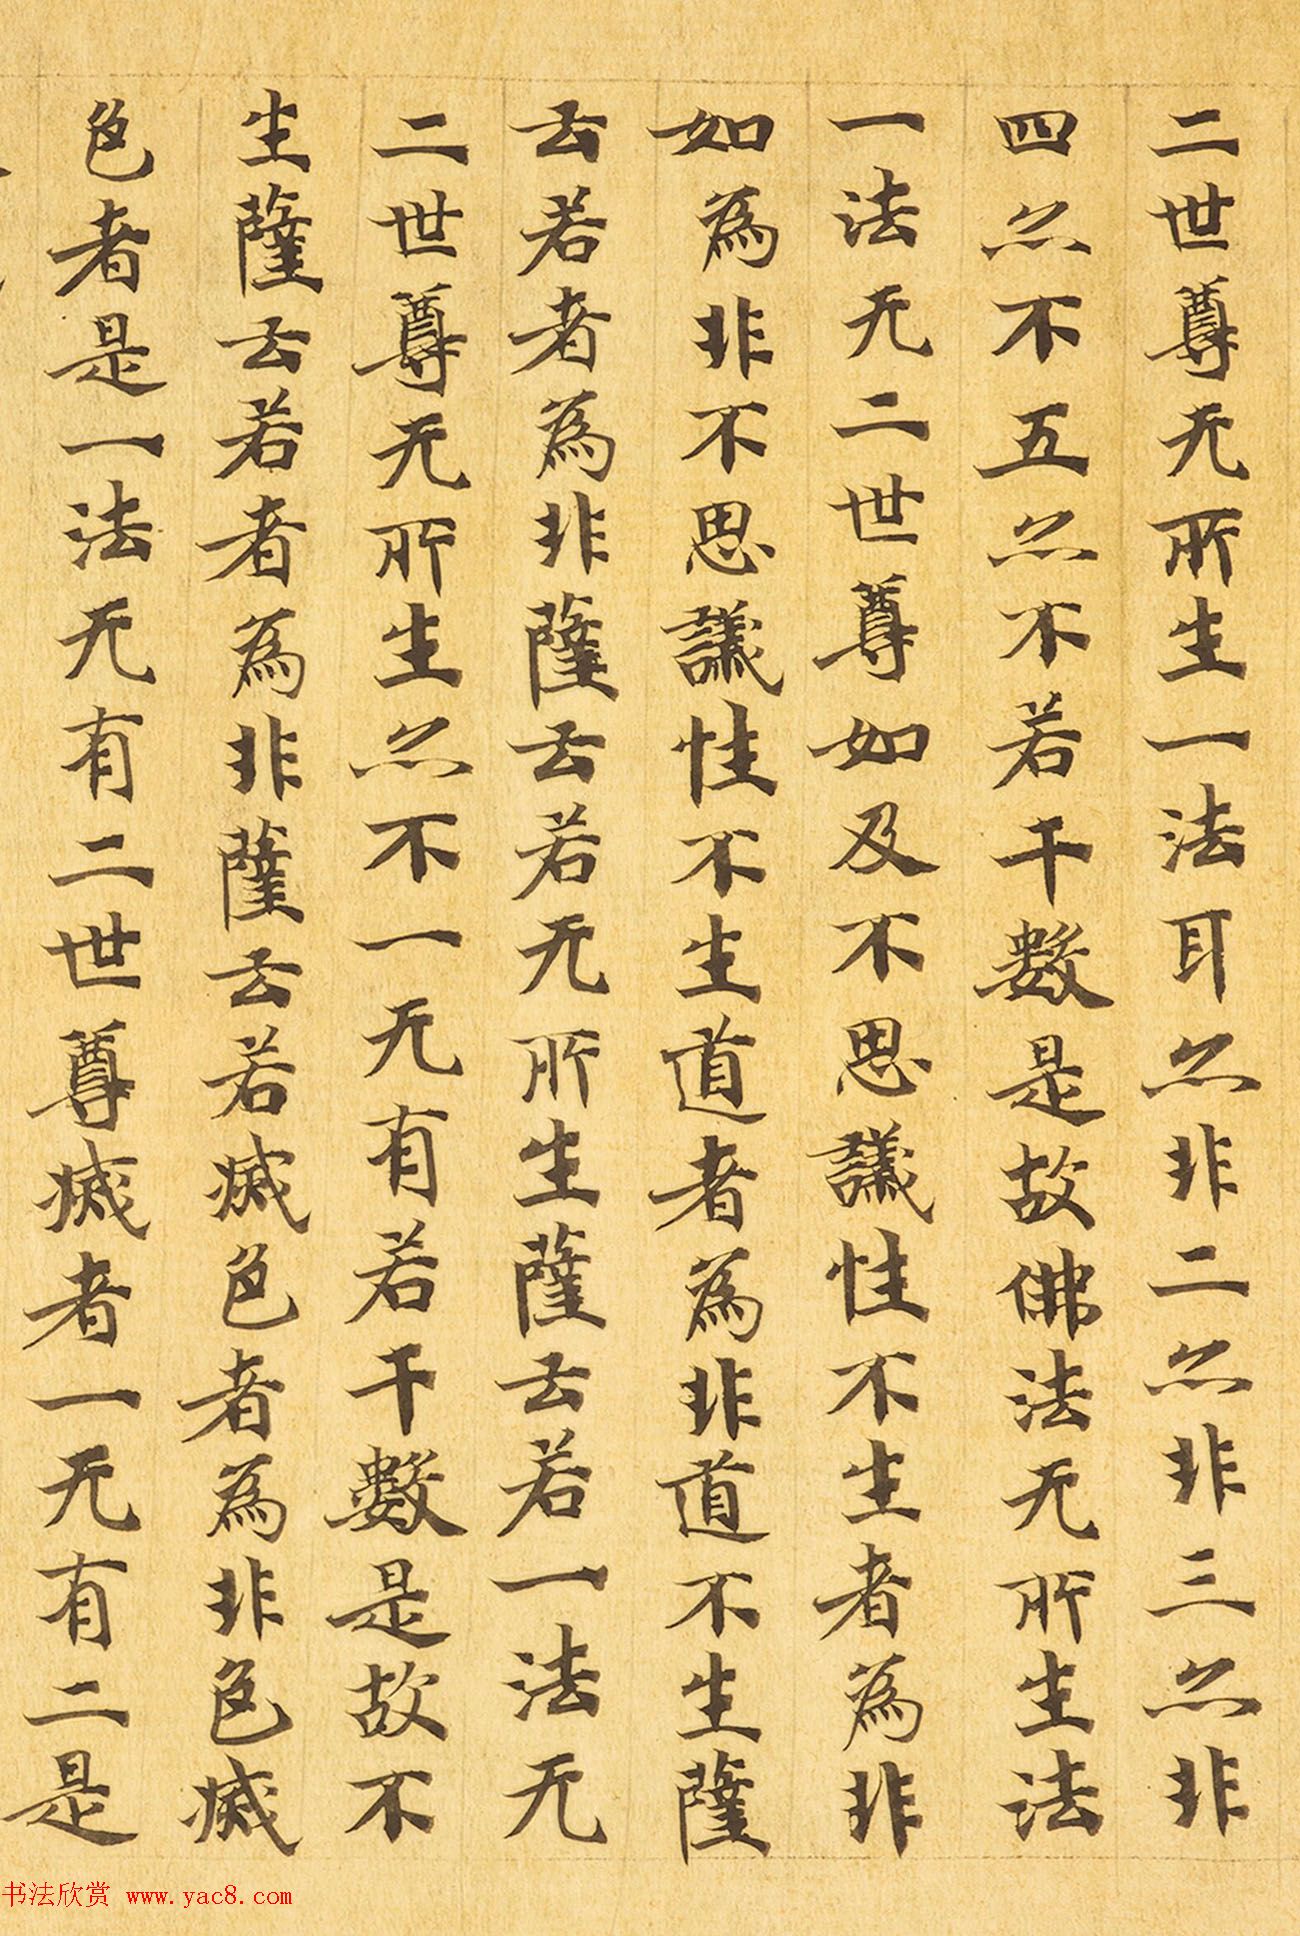 二世尊无所生一法耳亦非二亦非三亦非
四亦不五亦不若干數是故佛法无所生法
一法无二世尊如及不思議性不生者為非
如為非不思議性不生道者為非道不生薩
云若者為非薩云若无所生薩云若一法无
二世尊无所生亦不一无有若干數是故不
生薩云若者為非薩云若滅色者為非色滅
色者是一法无有二世尊滅者一无有二是
书法欣赏 www.yac8.com